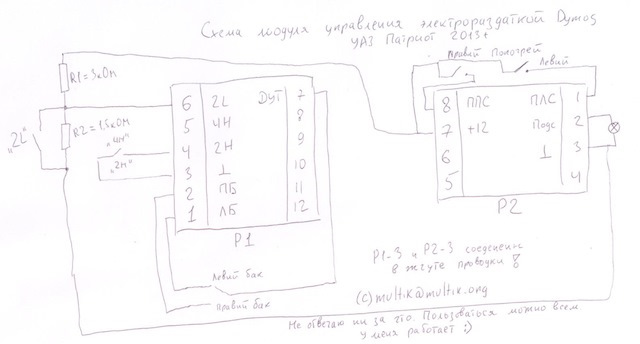 Схема модуля управления электрораздаткой Dymos
УАЗ Патриот 2013+
Правий Подогрей
Левий
R1=3кОм
R2=1,5кОм
"2L"
"4H"
"2H"
6 2L ДУТ 7
5 4H 8
4 2H 9
3 ⊥ 10
2 ПБ 11
1 ЛБ 12
P1
8 ППС ПЛС 1
7 +12 Подс 2
6 ⊥ 3
5 4
P2
P1-3 и P2-3 соединены
в жгуте проводки!
Левий бак
Правий бак
(c) multik@multik.org
Не отвечаю ни за что. Пользоваться можно всем
У меня работает :)